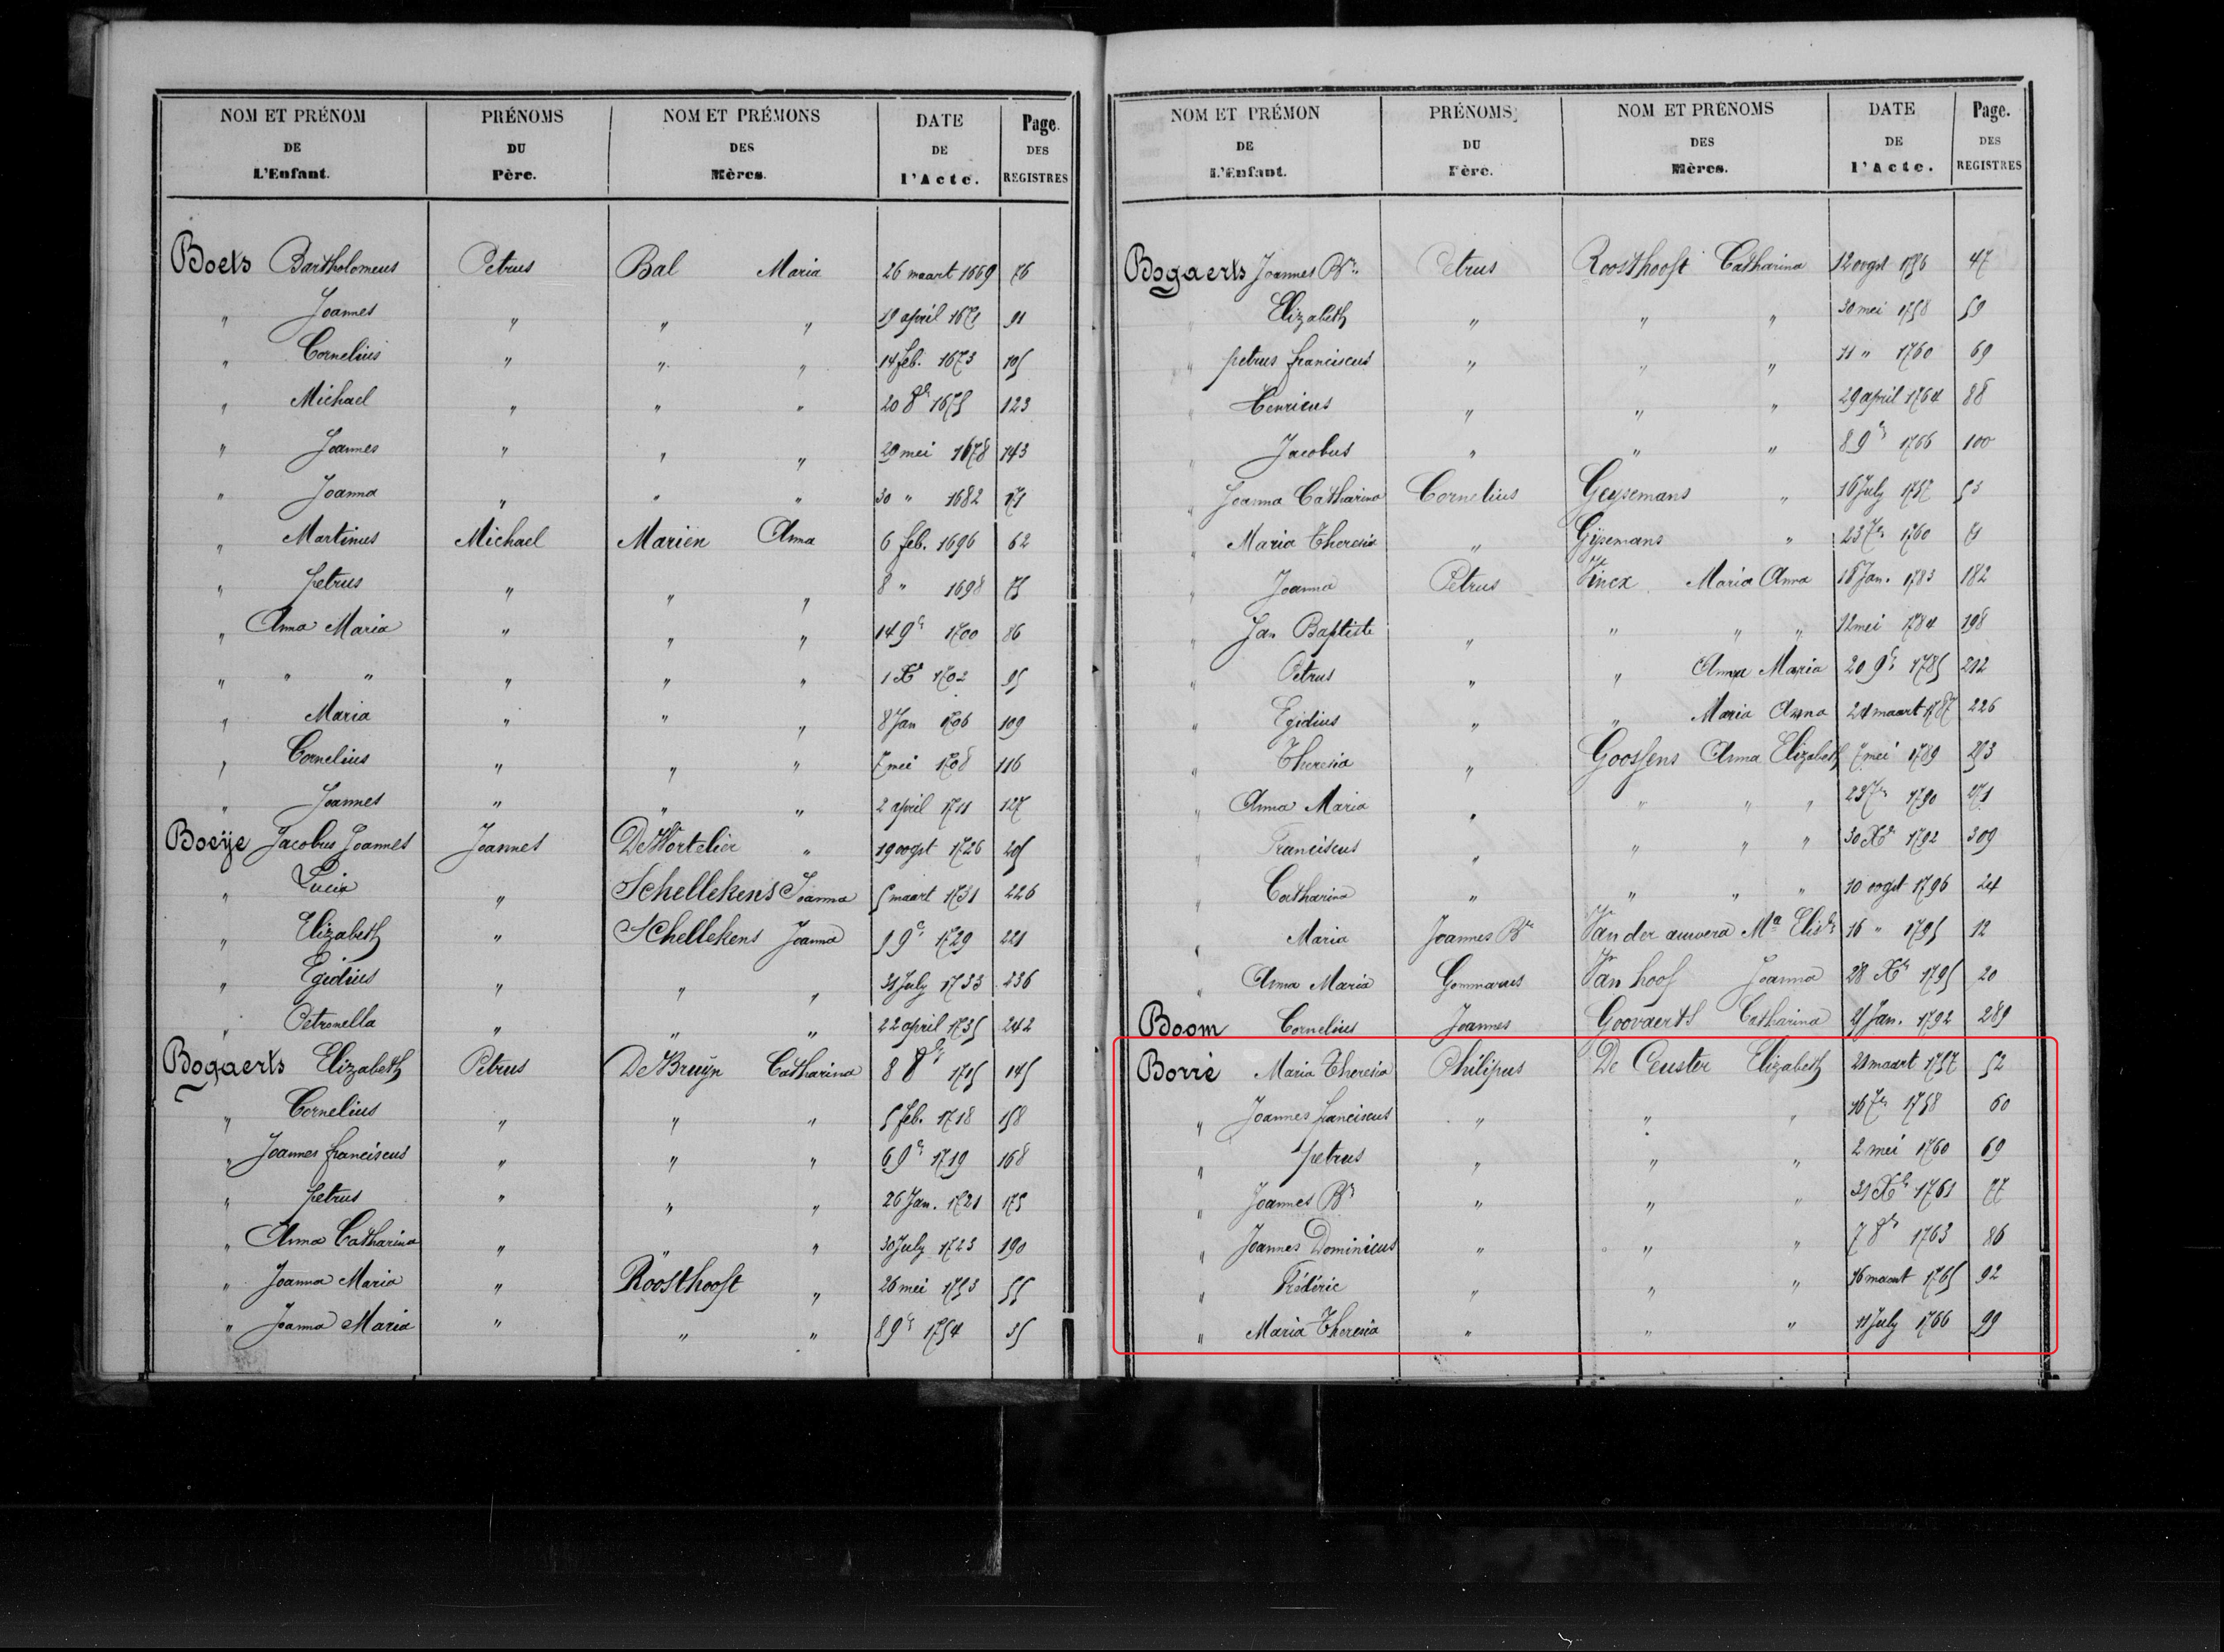 NOM ET PRÉNOM DE L'Enfant. PRÉNOMS DU Père. NOM ET PRÉMONS DES Mères. DATE DE l'Acte. Page. DES REGISTRES
Boets Bartholomeus Petrus Bal Maria 26 maart 1669 76
" Joannes " " " 19 april 1671 91
" Cornelius " " " 14 feb. 1673 105
" Michael " " " 20 8br 1675 123
" Joannes " " " 29 mei 1678 143
" Joanna " " " 30 " 1682 171
" Martinus Michael Marien Anna 6 feb. 1696 62
" petrus " " " 8 " 1698 75
" Anna Maria " " " 14 9br 1700 86
" " " " " " 1 Xbr 1702 95
" Maria " " " 8 Jan 1706 109
" Cornelius " " " 7 mei 1708 116
" Joannes " " " 2 april 1711 127
Boeije Jacobus Joannes Joannes De Wortelier " 19 oogst 1726 205
" Lucia " Schellekens Joanna 5 maart 1731 226
" Elizabeth " Schellekens Joanna 9br 1729 221
" Egidius " " " 31 July 1733 236
" Petronella " " " 22 april 1735 242
Bogaerts Elizabeth Petrus De Bruyn Catharina 8 8br 1715 145
" Cornelius " " " 5 feb. 1718 158
" Joannes franciscus " " " 6 9br 1719 168
" petrus " " " 26 Jan. 1721 175
" Anna Catharina " " " 30 July 1723 190
" Joanna Maria " Roosthooft " 26 mei 1753
" Joanna Maria " " " 8 9br 1754 35
NOM ET PRÉMON DE L'Enfant. PRÉNOMS DU Père. NOM ET PRÉNOMS DES Mères. DATE DE l'Acte. Page. DES REGISTRES
Bogaerts Joannes Bte Petrus Roosthooft Catharina 12 oogst 1756 47
" Elizabeth " " " 30 mei 1758 59
" petrus franciscus " " " 11 " 1760 69
" Henricus " " " 29 april 1764 88
" Jacobus " " " 8 9br 1766 100
" Joanna Catharina Cornelius Geysemans " 16 July 1757 53
" Maria Theresia " Gysemans " 23 7br 1760 71
" Joanna Petrus Vincx Maria Anna 18 Jan. 1783 182
" Jan Baptiste " " " " 12 mei 1784 198
" Petrus " " Anna Maria 20 9br 1785 212
" Egidius " " Maria Anna 24 maart 1787 226
" Theresia " Goossens Anna Elizabeth 7 mei 1789 253
" Anna Maria " " " " 23 7br 1790 271
" Franciscus " " " " 30 Xbr 1792 309
" Catharina " " " " 10 oogst 1796 24
" Maria Joannes Bte Van der auwera Ma Elisth 16 " 1795 12
" Anna Maria Gommarus Van hoof Joanna 28 Xbr 1795 20
Boom Cornelius Joannes Goovaerts Catharina 21 Jan. 1792 289
Borré Maria Theresia Philipus De Ceuster Elizabeth 21 maart 1757 52
" Joannes franciscus " " " 16 7br 1758 60
" petrus " " " 2 mei 1760 69
" Joannes Bte " " " 31 Xbr 1761 77
" Joannes Dominicus " " " 7 8br 1763 86
" Frédéric " " " 16 maart 1765 92
" Maria Theresia " " " 11 July 1766 99